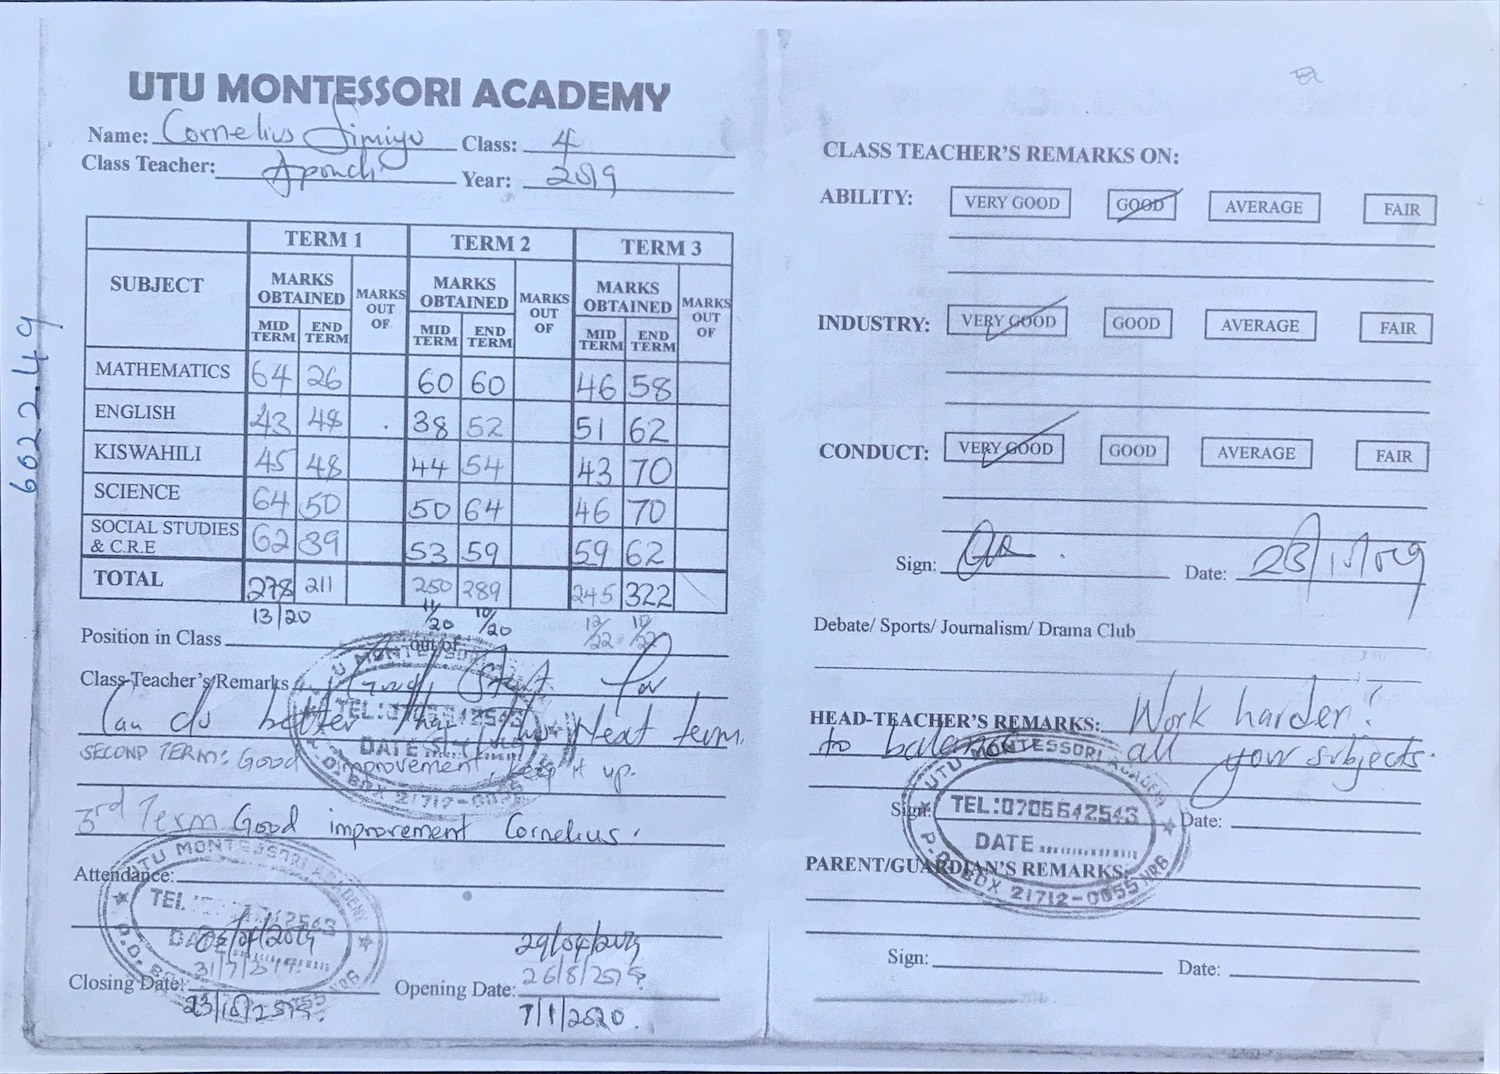 UTU MONTESSORI ACADEMY
Name: Cornelius Simiyu Class: 4
Class Teacher: Aponch Year: 2019
SUBJECT TERM 1 TERM 2 TERM 3
MARKS OBTAINED MARKS OUT OF MARKS OBTAINED MARKS OUT OF MARKS OBTAINED MARKS OUT OF
MID TERM END TERM MID TERM END TERM MID TERM END TERM
MATHEMATICS 64 26 60 60 46 58
ENGLISH 43 48 38 52 51 62
KISWAHILI 45 48 44 54 43 70
SCIENCE 64 50 50 64 46 70
SOCIAL STUDIES & C.R.E 62 39 53 59 59 62
TOTAL 278 211 250 289 245 322
13/20 11/20 10/20 12/22 10/22
Position in Class out of
Class Teacher's Remarks
Can do better Next term.
SECOND TERM: Good improvement, keep it up.
3rd Term Good improvement Cornelius.
Attendance:
29/04/2019
31/7/2019 26/8/2019
Closing Date: Opening Date:
23/10/2019. 7/1/2020.
UTU MONTESSORI ACADEMY
TEL:0706642543
DATE
P.O. BOX 21712-0055 NRB
6022.49
CLASS TEACHER'S REMARKS ON:
ABILITY: VERY GOOD GOOD AVERAGE FAIR
INDUSTRY: VERY GOOD GOOD AVERAGE FAIR
CONDUCT: VERY GOOD GOOD AVERAGE FAIR
Sign: Date: 23/10/019
Debate/ Sports/ Journalism/ Drama Club
HEAD-TEACHER'S REMARKS: Work harder!
to balance all your subjects.
Sign: Date:
UTU MONTESSORI ACADEMY
TEL:0706642543
DATE
P.O. BOX 21712-0055 NRB
PARENT/GUARDIAN'S REMARKS:
Sign: Date: